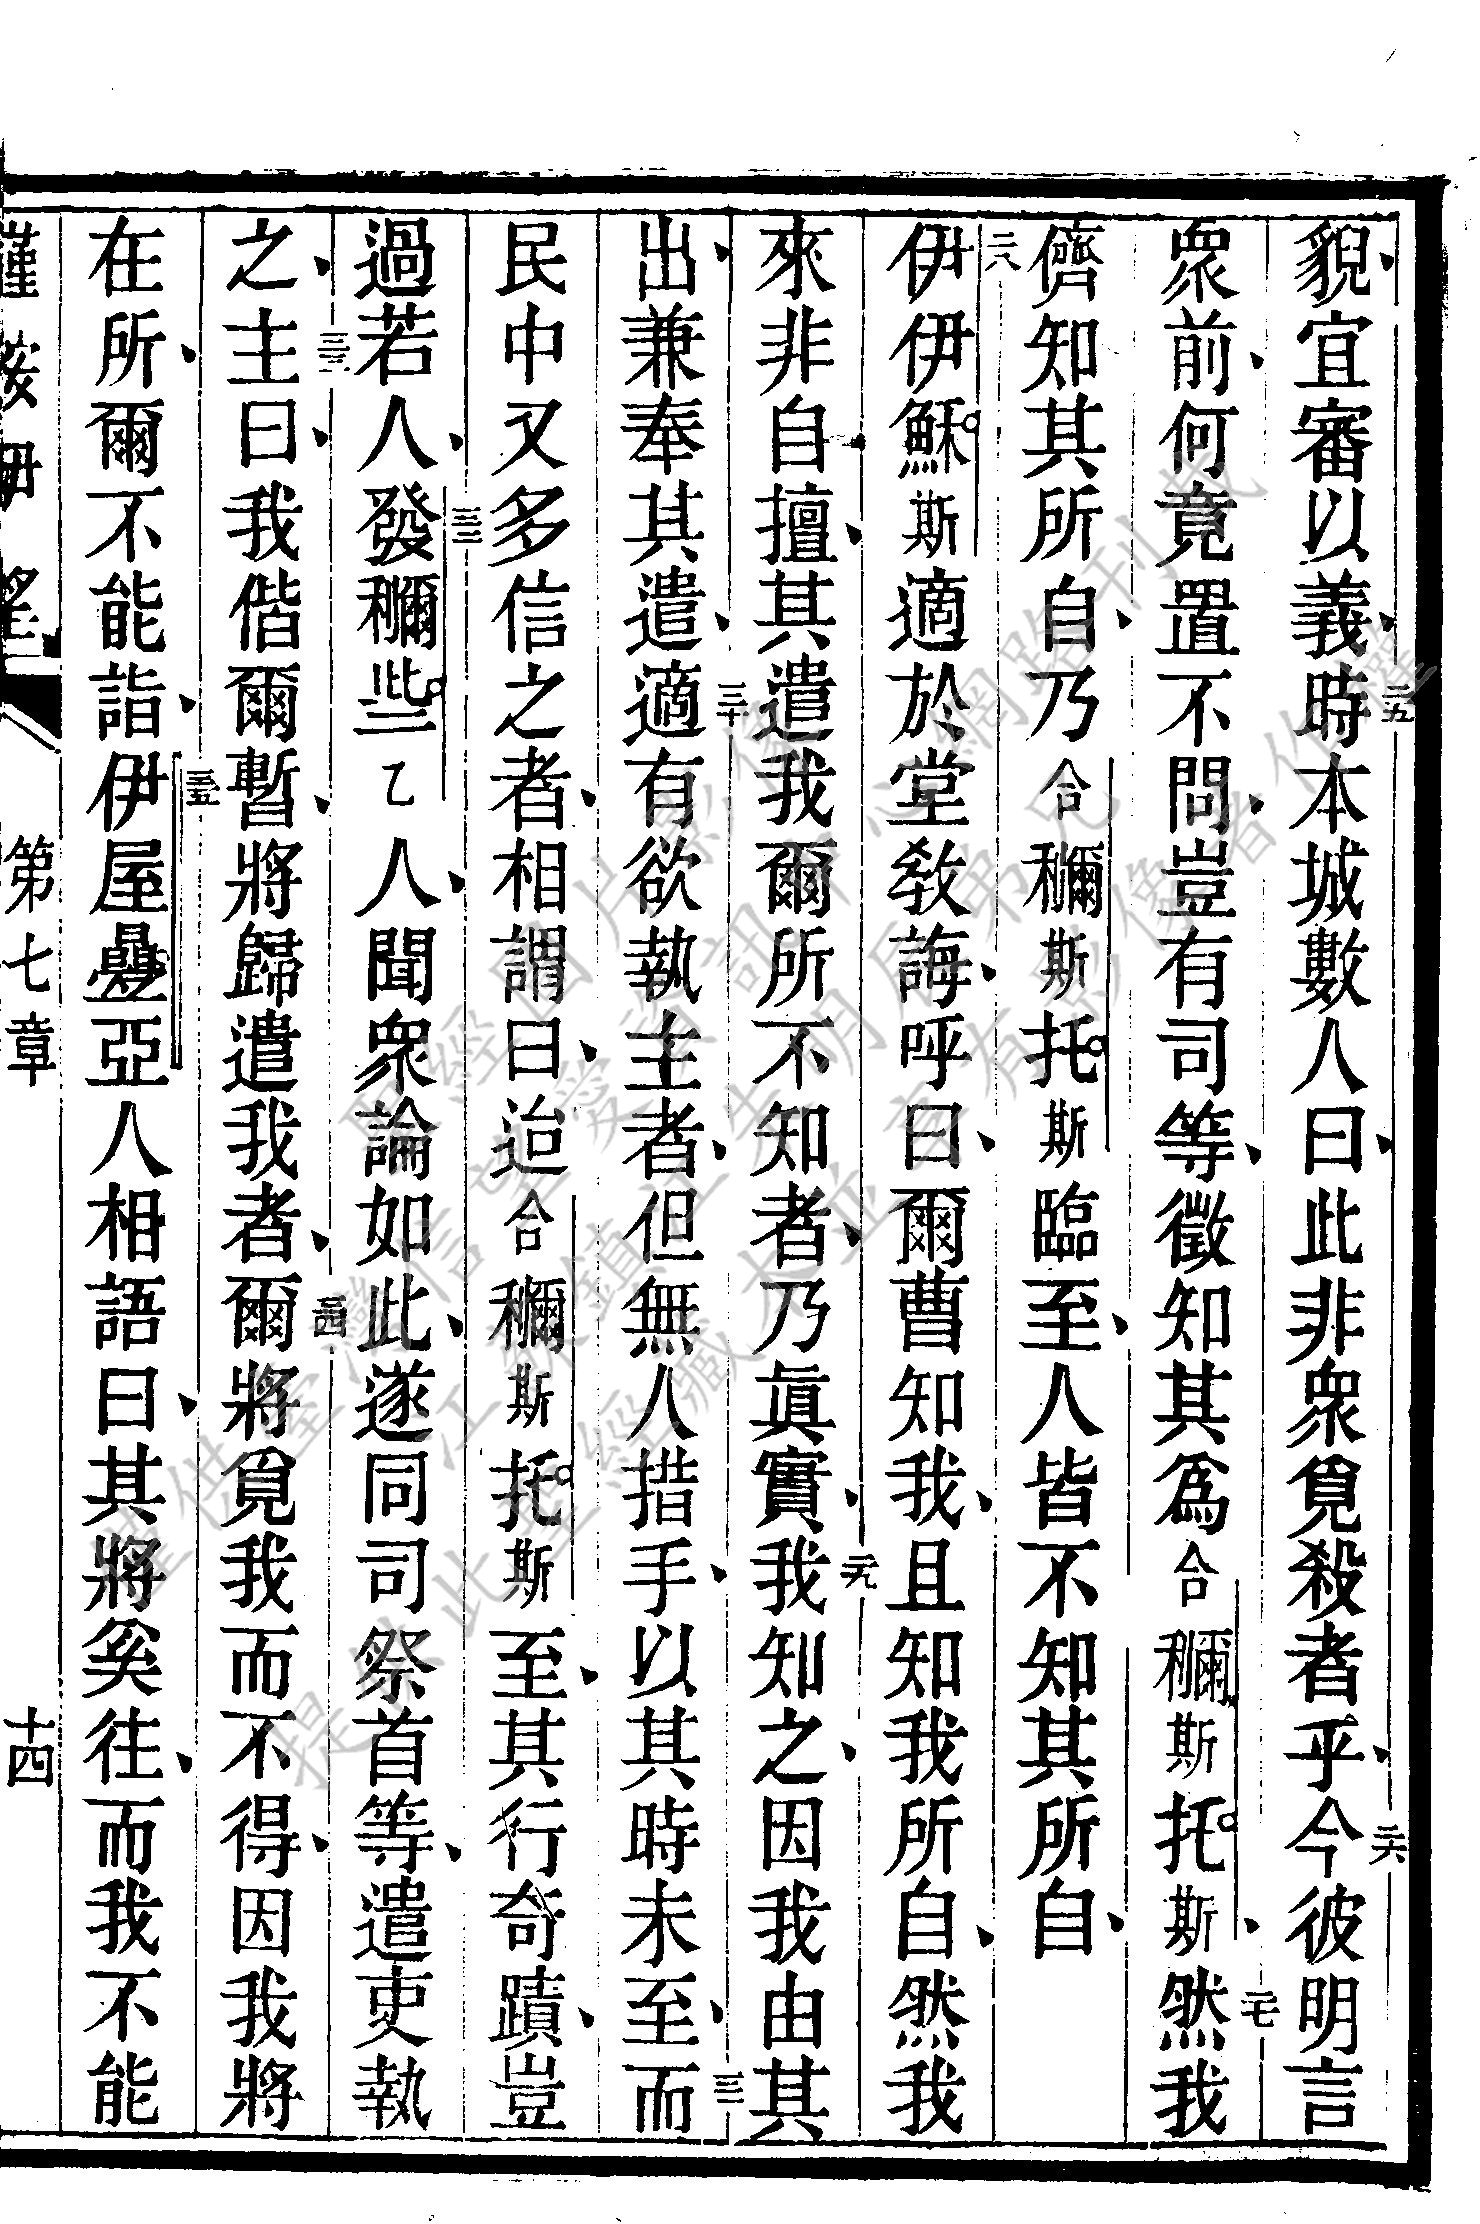 貎宜審以義時二五本城數人曰此非衆覓殺者乎今二六彼明言
衆前何竟置不問豈有司等徵知其爲合穪斯托斯然二七我
儕知其所自乃合穪斯托斯臨至人皆不知其所自
二八伊伊穌斯適於堂敎誨呼曰爾曹知我且知我所自然我
來非自擅其遣我爾所不知者乃眞實二九我知之因我由其
出兼奉其遣三十適有欲執主者但無人措手以其時未至三一而
民中又多信之者相謂曰迨合穪斯托斯至其行奇蹟豈
過若人三二發穪些乙人聞衆論如此遂同司祭首等遣吏執
之三三主曰我偕爾暫將歸遣我者三四爾將覓我而不得因我將
在所爾不能詣三五伊屋疉亞人相語曰其將奚往而我不能
第七章
十四